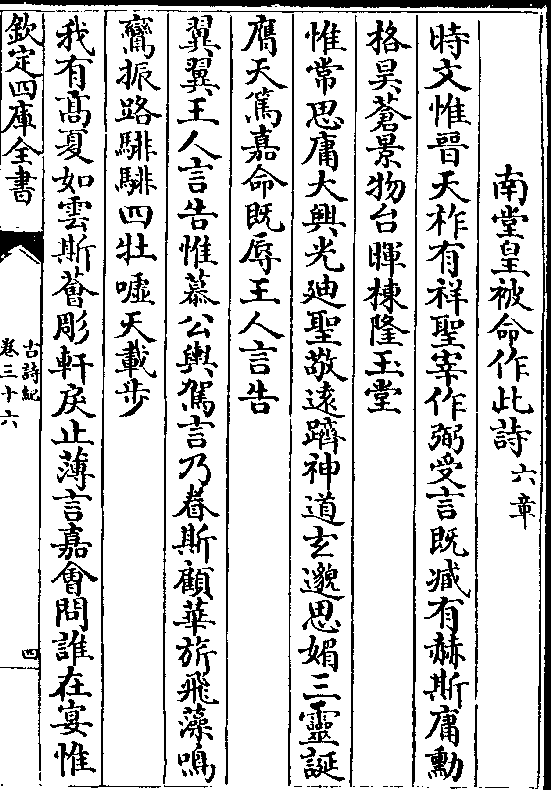 南堂皇被命作此詩六章
時文惟晉天祚有祥聖宰作弼受言既臧有赫斯庸勳
格昊蒼景物台暉棟隆玉堂
惟常思庸大興光廸聖敬遠躋神道玄邈思媚三靈誕
膺天篤嘉命既辱王人言告
翼翼王人言告惟慕公輿駕言乃眷斯顧華旂飛藻鳴
鸞振路騑騑四牡嘘天載步
我有髙夏如雲斯薈彫軒戾止薄言嘉會問誰在宴惟
欽定四庫全書
古詩紀
卷三十六
四